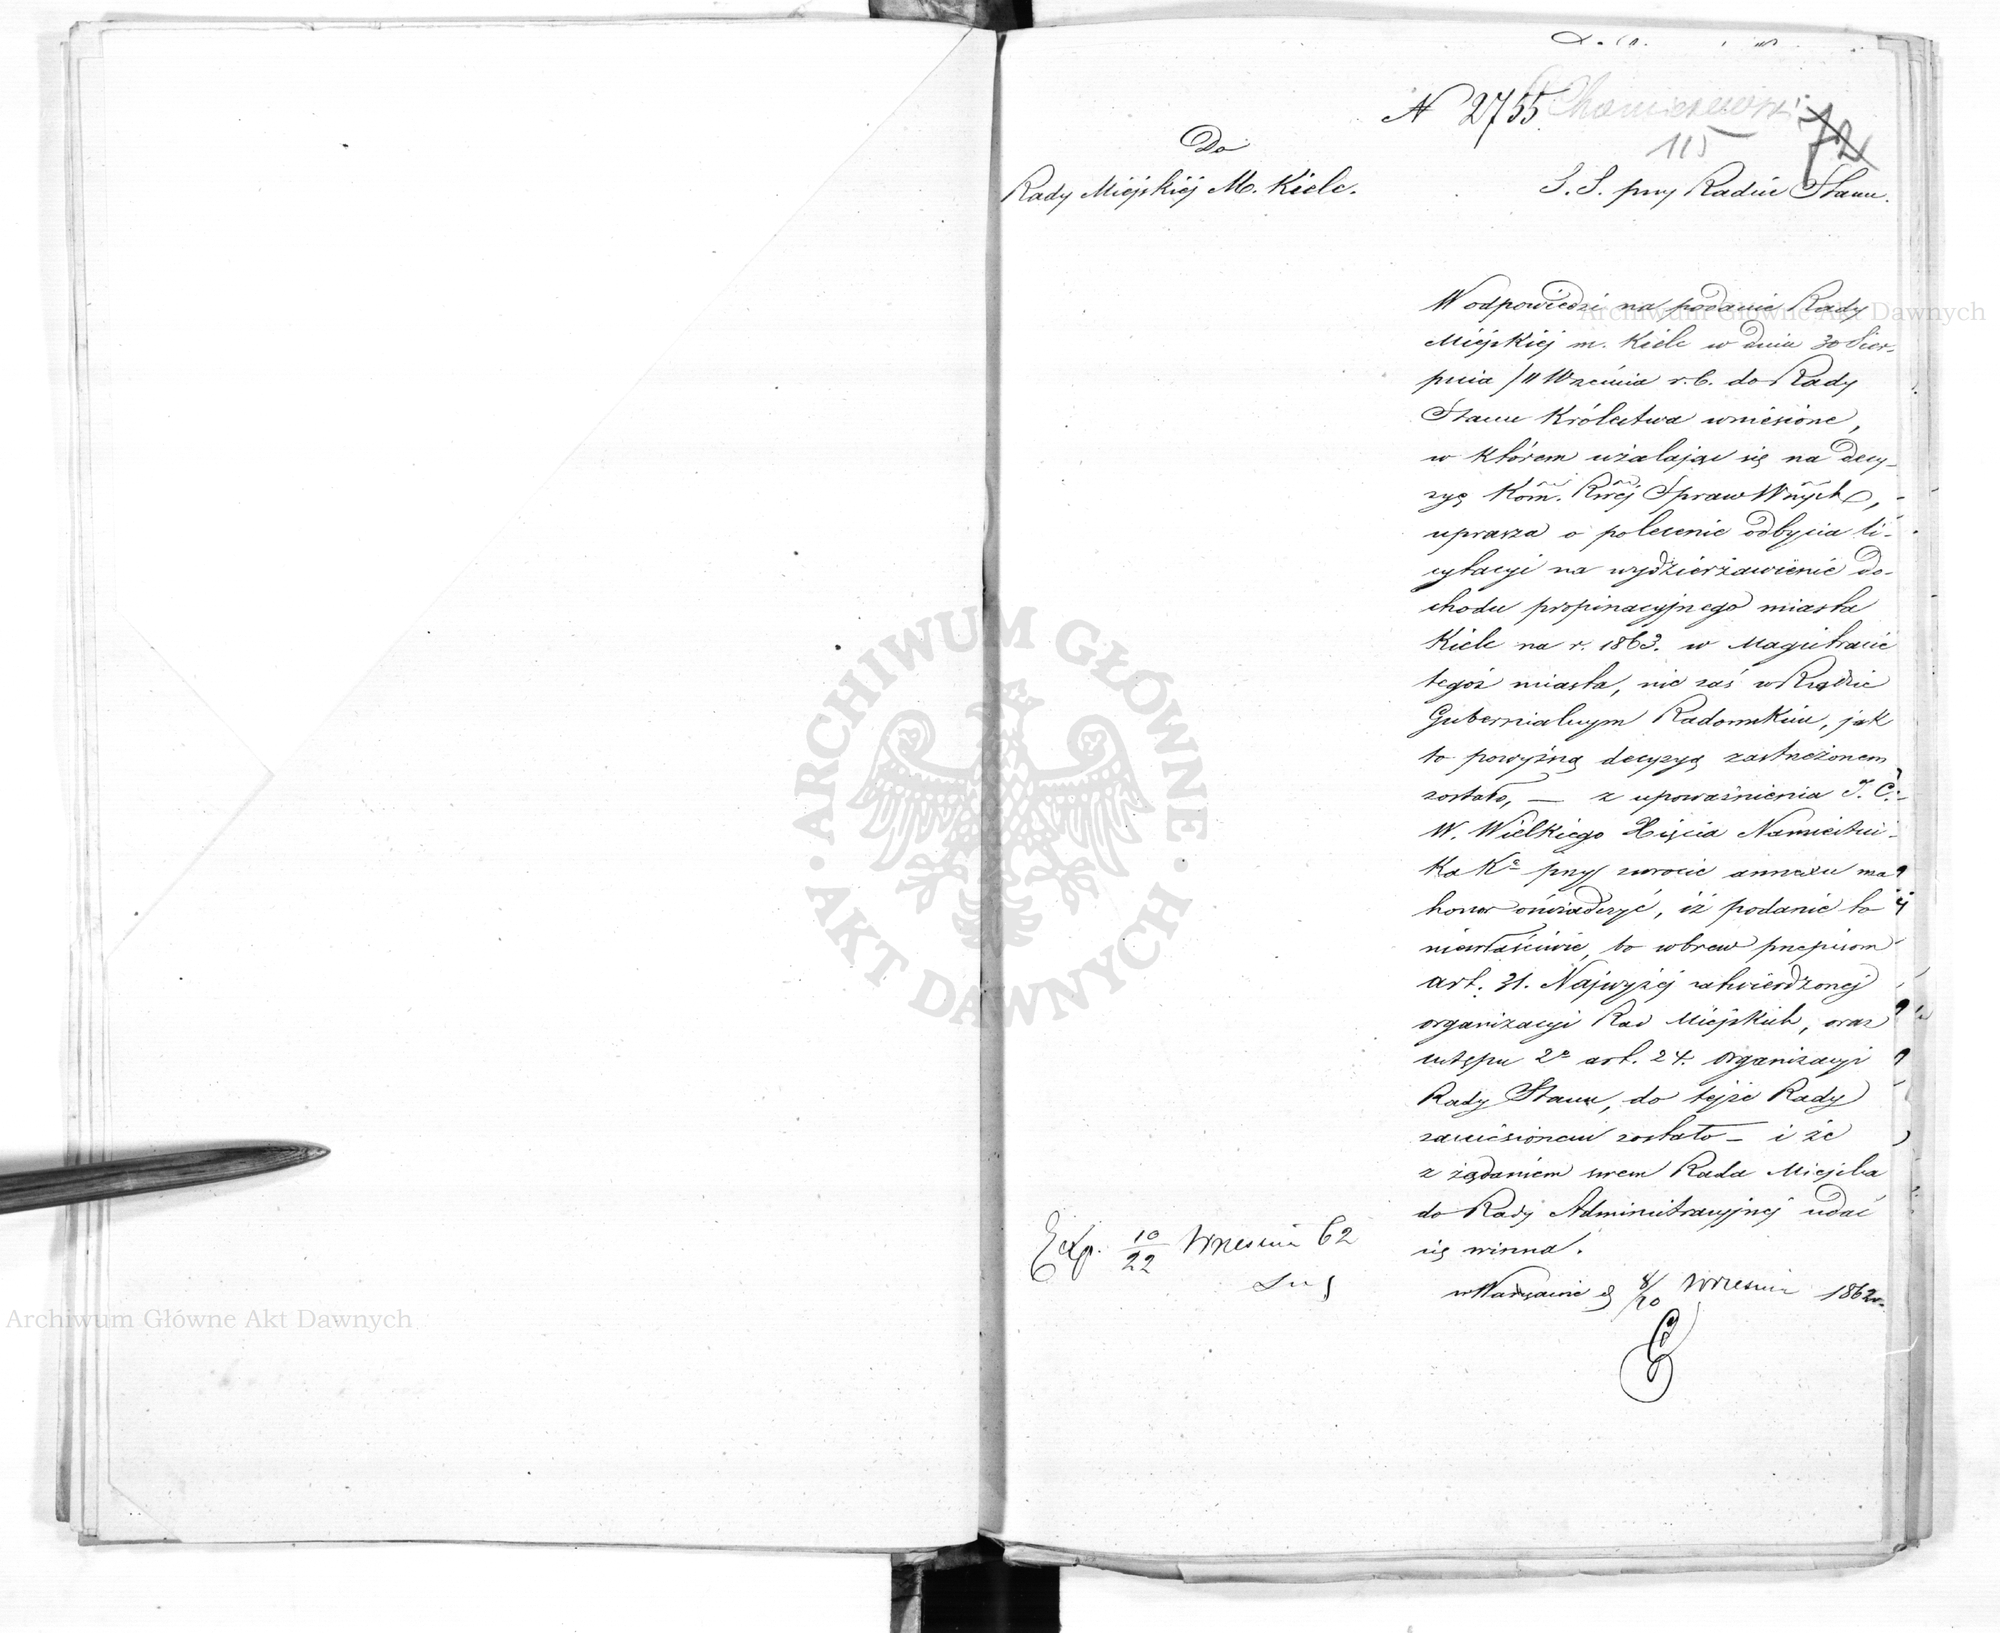 N 2755
115
72
Do
Rady Miejskiéj M. Kielc.
S. S. przy Radzie Stanu.
W odpowiedzi na podanie Rady
Miéjskiéj m. Kielc w dniu 30 Sier-
pnia / 11 Września r. b. do Rady
Stanu Królestwa wniesione,
w którem użalając się na decy-
zyę Kom. Rwéj Spraw Wnych,
uprasza o polecenie odbycia li-
cytacyi na wydzierżawienie do-
chodu propinacyjnego miasta
Kielc na r. 1863. w Magistracie
tegoż miasta, nie zaś w Rządzie
Gubernialnym Radomskim, jak
to powyższą decyzyą zastrzeżonem
zostało, — z upoważnienia J. C.
W. Wielkiego Xięcia Namiestni-
ka Kr przy zwrocie annexu ma
honor oświadczyć, iż podanie to
niewłaściwie, bo wbrew przepisom
art. 31. Najwyżéj zatwierdzonej
organizacyi Rad Miejskich, oraz
ustępu 2o art. 24. organizacyi
Rady Stanu, do tejże Rady
zaniesionem zostało — i że
z żądaniem swem Rada Miejska
do Rady Administracyjnej udać
się winna.
w Warszawie d 8/20 Września 1862 r.
Exp. 10/22 Września 62
ARCHIWUM GŁÓWNE
AKT DAWNYCH
Archiwum Główne Akt Dawnych
Archiwum Główne Akt Dawnych